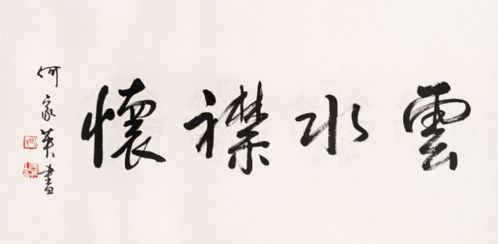 雲水襟懷
何家英書